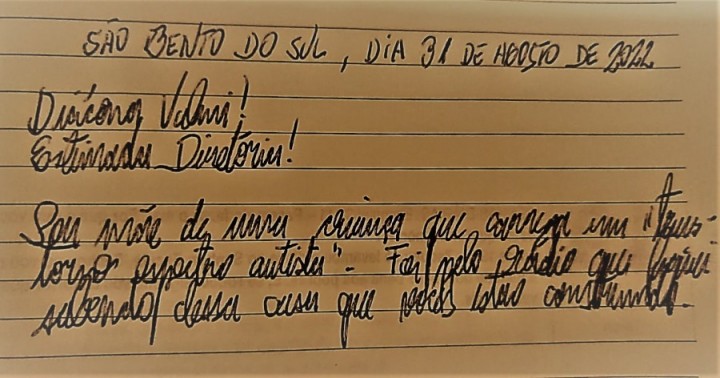 SÃO BENTO DO SUL, DIA 31 DE AGOSTO DE 2022
Diácona Valmi!
Estimada Diretoria!
Sou mãe de uma criança que carrega um "Trans-
torno espectro autista". Foi pelo rádio que fiquei
sabendo dessa casa que vocês estão construindo.